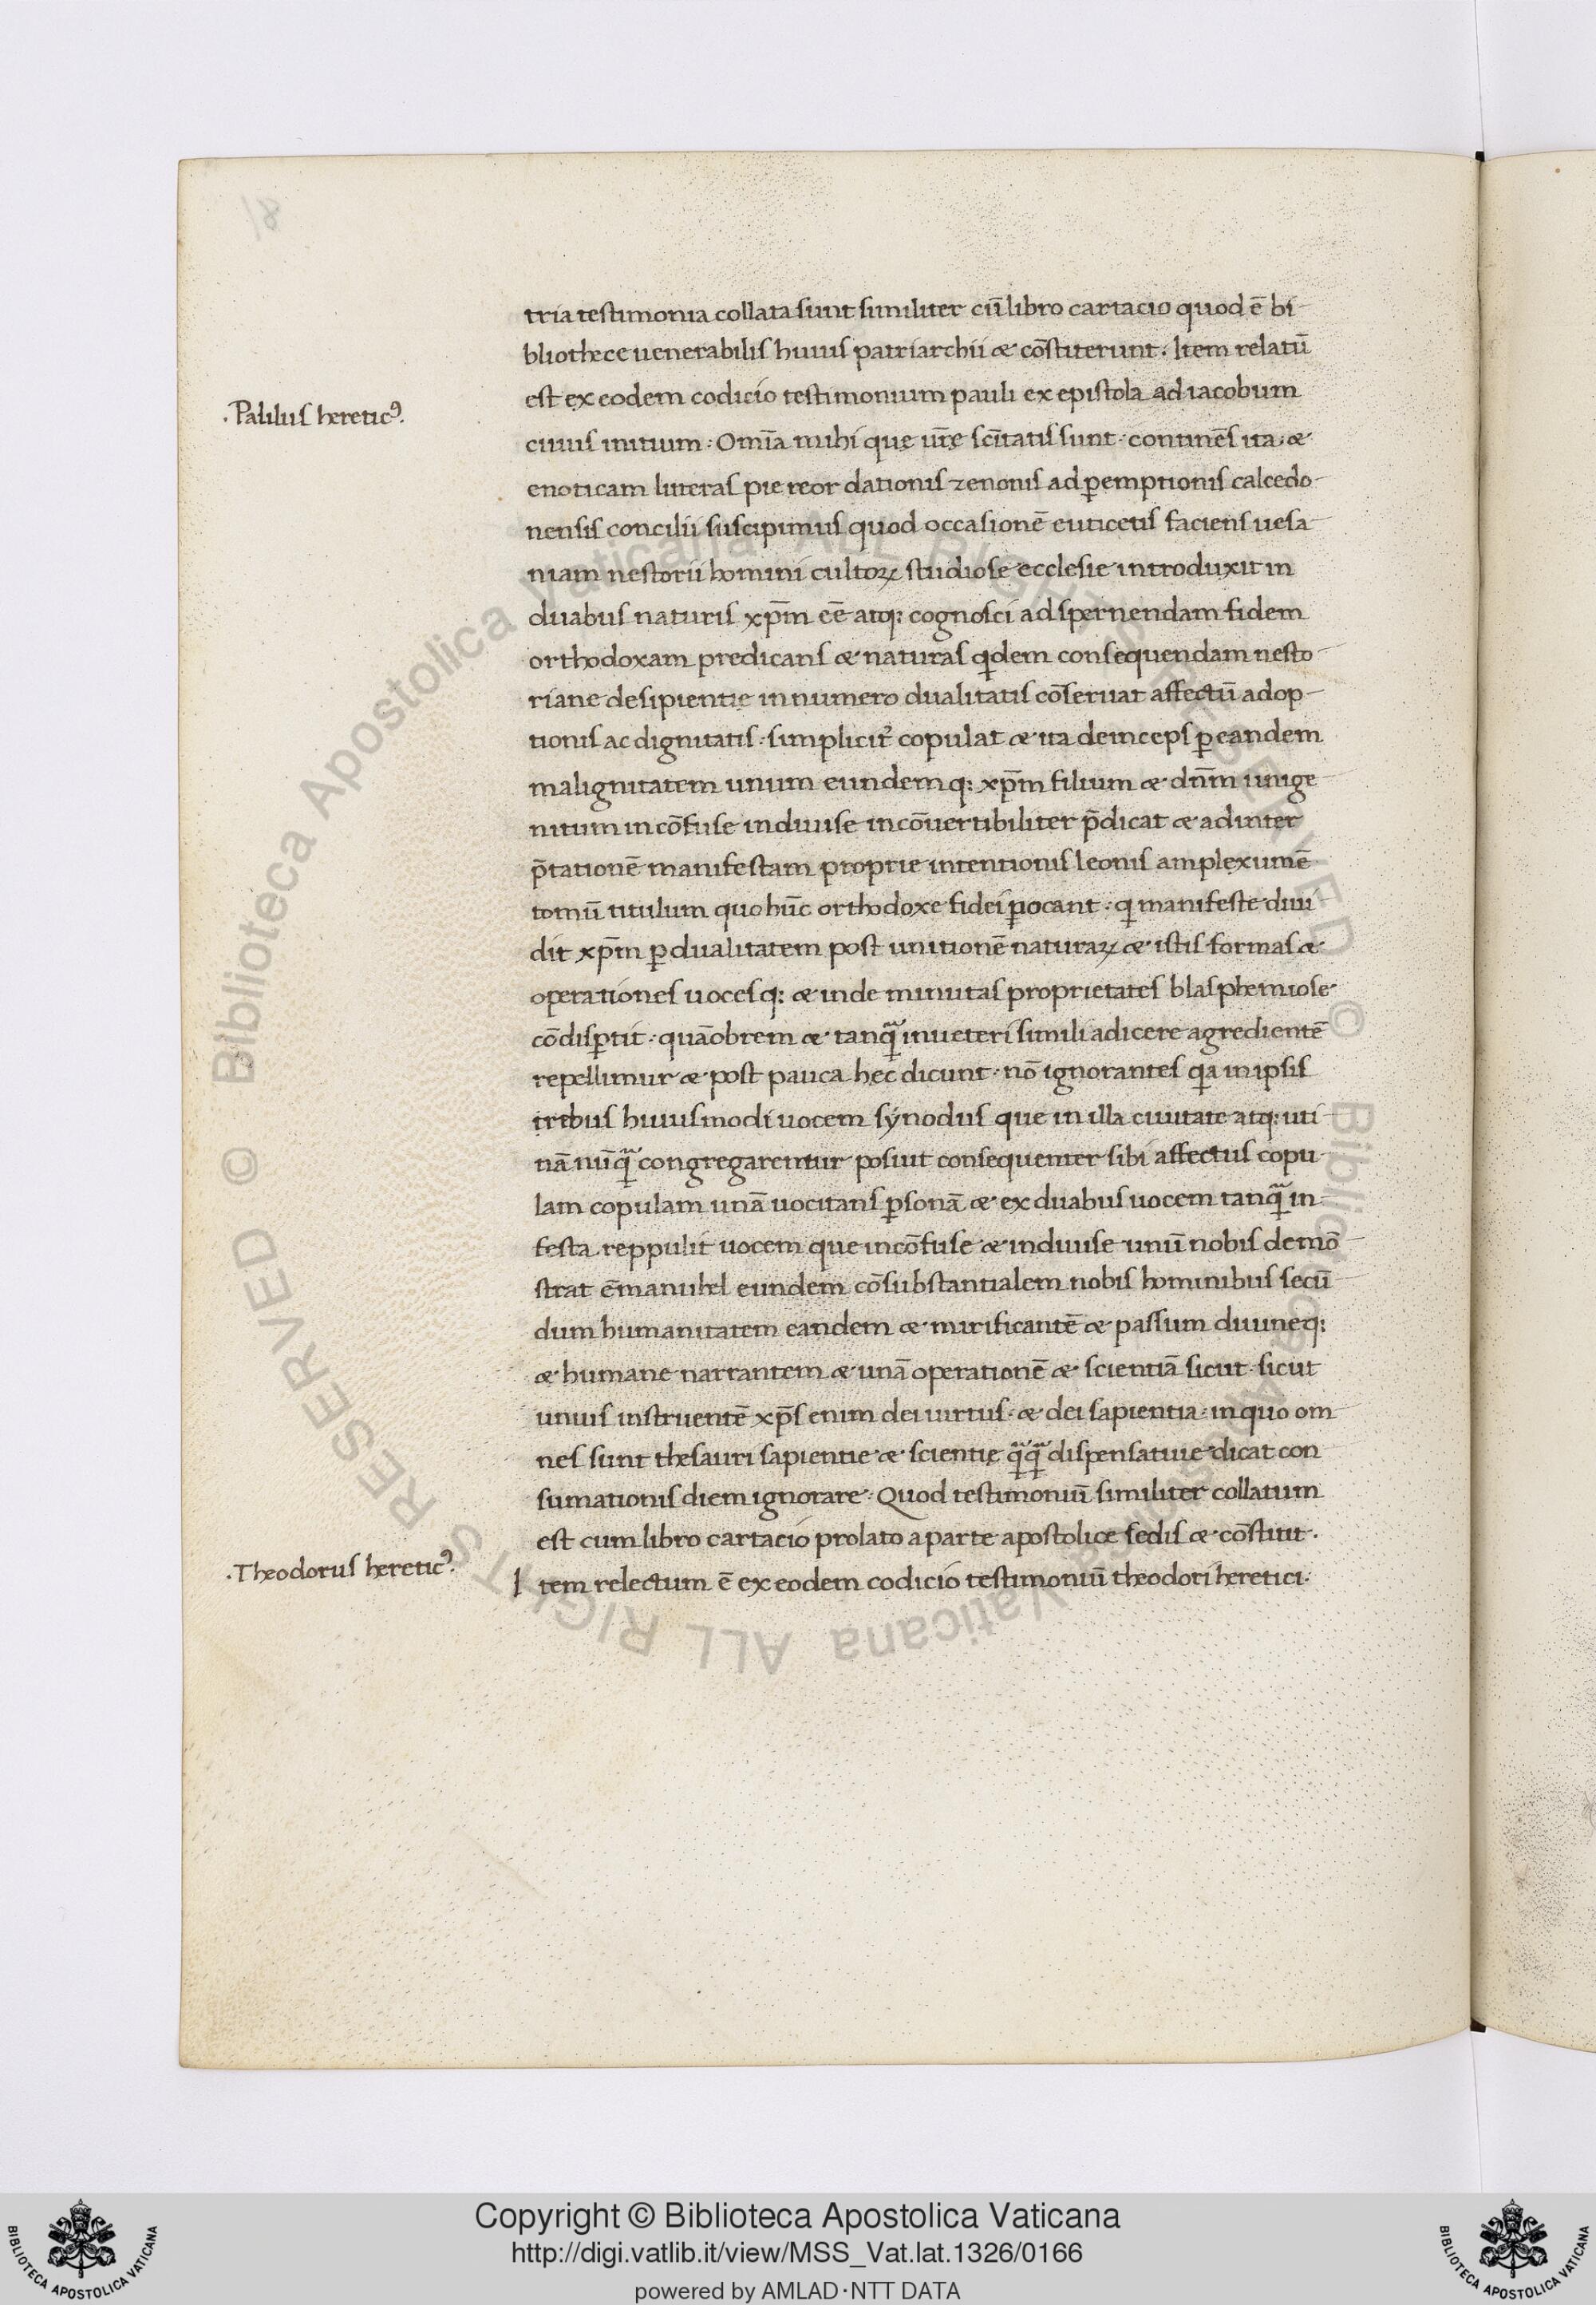 18
tria testimonia collata sunt similiter cū libro cartacio quod ē bi-
bliothece uenerabilis huius patriarchii & cōstiterunt. Item relatū
est ex eodem codicio testimonium pauli ex epistola ad iacobum
.Paulus heretic⁹.
cuius initium. Om̄ia mihi que ur̄ę sc̄itatis sunt. continēs ita. &
enoticam litteras pie reor dationis zenonis ad ꝑemptionis calcedo-
nensis concilii suscipimus quod occasionē euticetis faciens uesa-
niam nestorii homini cultoꝝ studiose ecclesie introduxit in
duabus naturis xp̄m eē atq; cognosci ad spernendam fidem
orthodoxam predicans & naturas qⁱdem consequendam nesto-
riane desipientię in numero dualitatis cōseruat affectū adop-
tionis ac dignitatis. simplicit̉ copulat & ita deinceps ꝑ eandem
malignitatem unum eundemq; xp̄m filium & dn̄m unige-
nitum incōfuse indiuise incōuertibiliter p̄dicat & ad inter
p̄tationē manifestam proprie intentionis leonis amplexumē
tomū titulum quo hūc orthodoxe fidei ꝓuocant. qⁱ manifeste diui
dit xp̄m ꝑ dualitatem post unitionē naturaꝝ & istis formas &
operationes uocesq; & inde minutas proprietates blasphemiose
cōdisꝑtit. quāobrem & tanqᷓ in ueteri simili adicere agredientē
repellimur & post pauca hec dicunt. nō ignorantes qⁱa in ipsis
tribus huiusmodi uocem synodus que in illa ciuitate atq; uti-
nā nūqᷓ congregarentur posuit consequenter sibi affectus copu-
lam copulam unā uocitans ꝑsonā & ex duabus uocem tanqᷓ in-
festa reppulit uocem que incōfuse & indiuise unū nobis demō-
strat ēmanuhel eundem cōsubstantialem nobis hominibus secū-
dum humanitatem eandem & mirificantē & passum diuineq;
& humane narrantem & unā operationē & scientiā sicut. sicut
unius instruentē xp̄s enim dei uirtus. & dei sapientia. in quo om-
nes sunt thesauri sapientie & scientię qᷓqᷓ dispensatiue dicat con
sumationis diem ignorare. Quod testimoniū similiter collatum
est cum libro cartacio prolato a parte apostolice sedis & cōstitit.
.Theodorus heretic⁹.
Item relectum ē ex eodem codicio testimoniū theodori heretici.
© Biblioteca Apostolica Vaticana ALL RIGHTS RESERVED © Biblioteca Apostolica Vaticana ALL RIGHTS RESERVED
Copyright © Biblioteca Apostolica Vaticana
http://digi.vatlib.it/view/MSS_Vat.lat.1326/0166
powered by AMLAD·NTT DATA
BIBLIOTECA APOSTOLICA VATICANA
BIBLIOTECA APOSTOLICA VATICANA